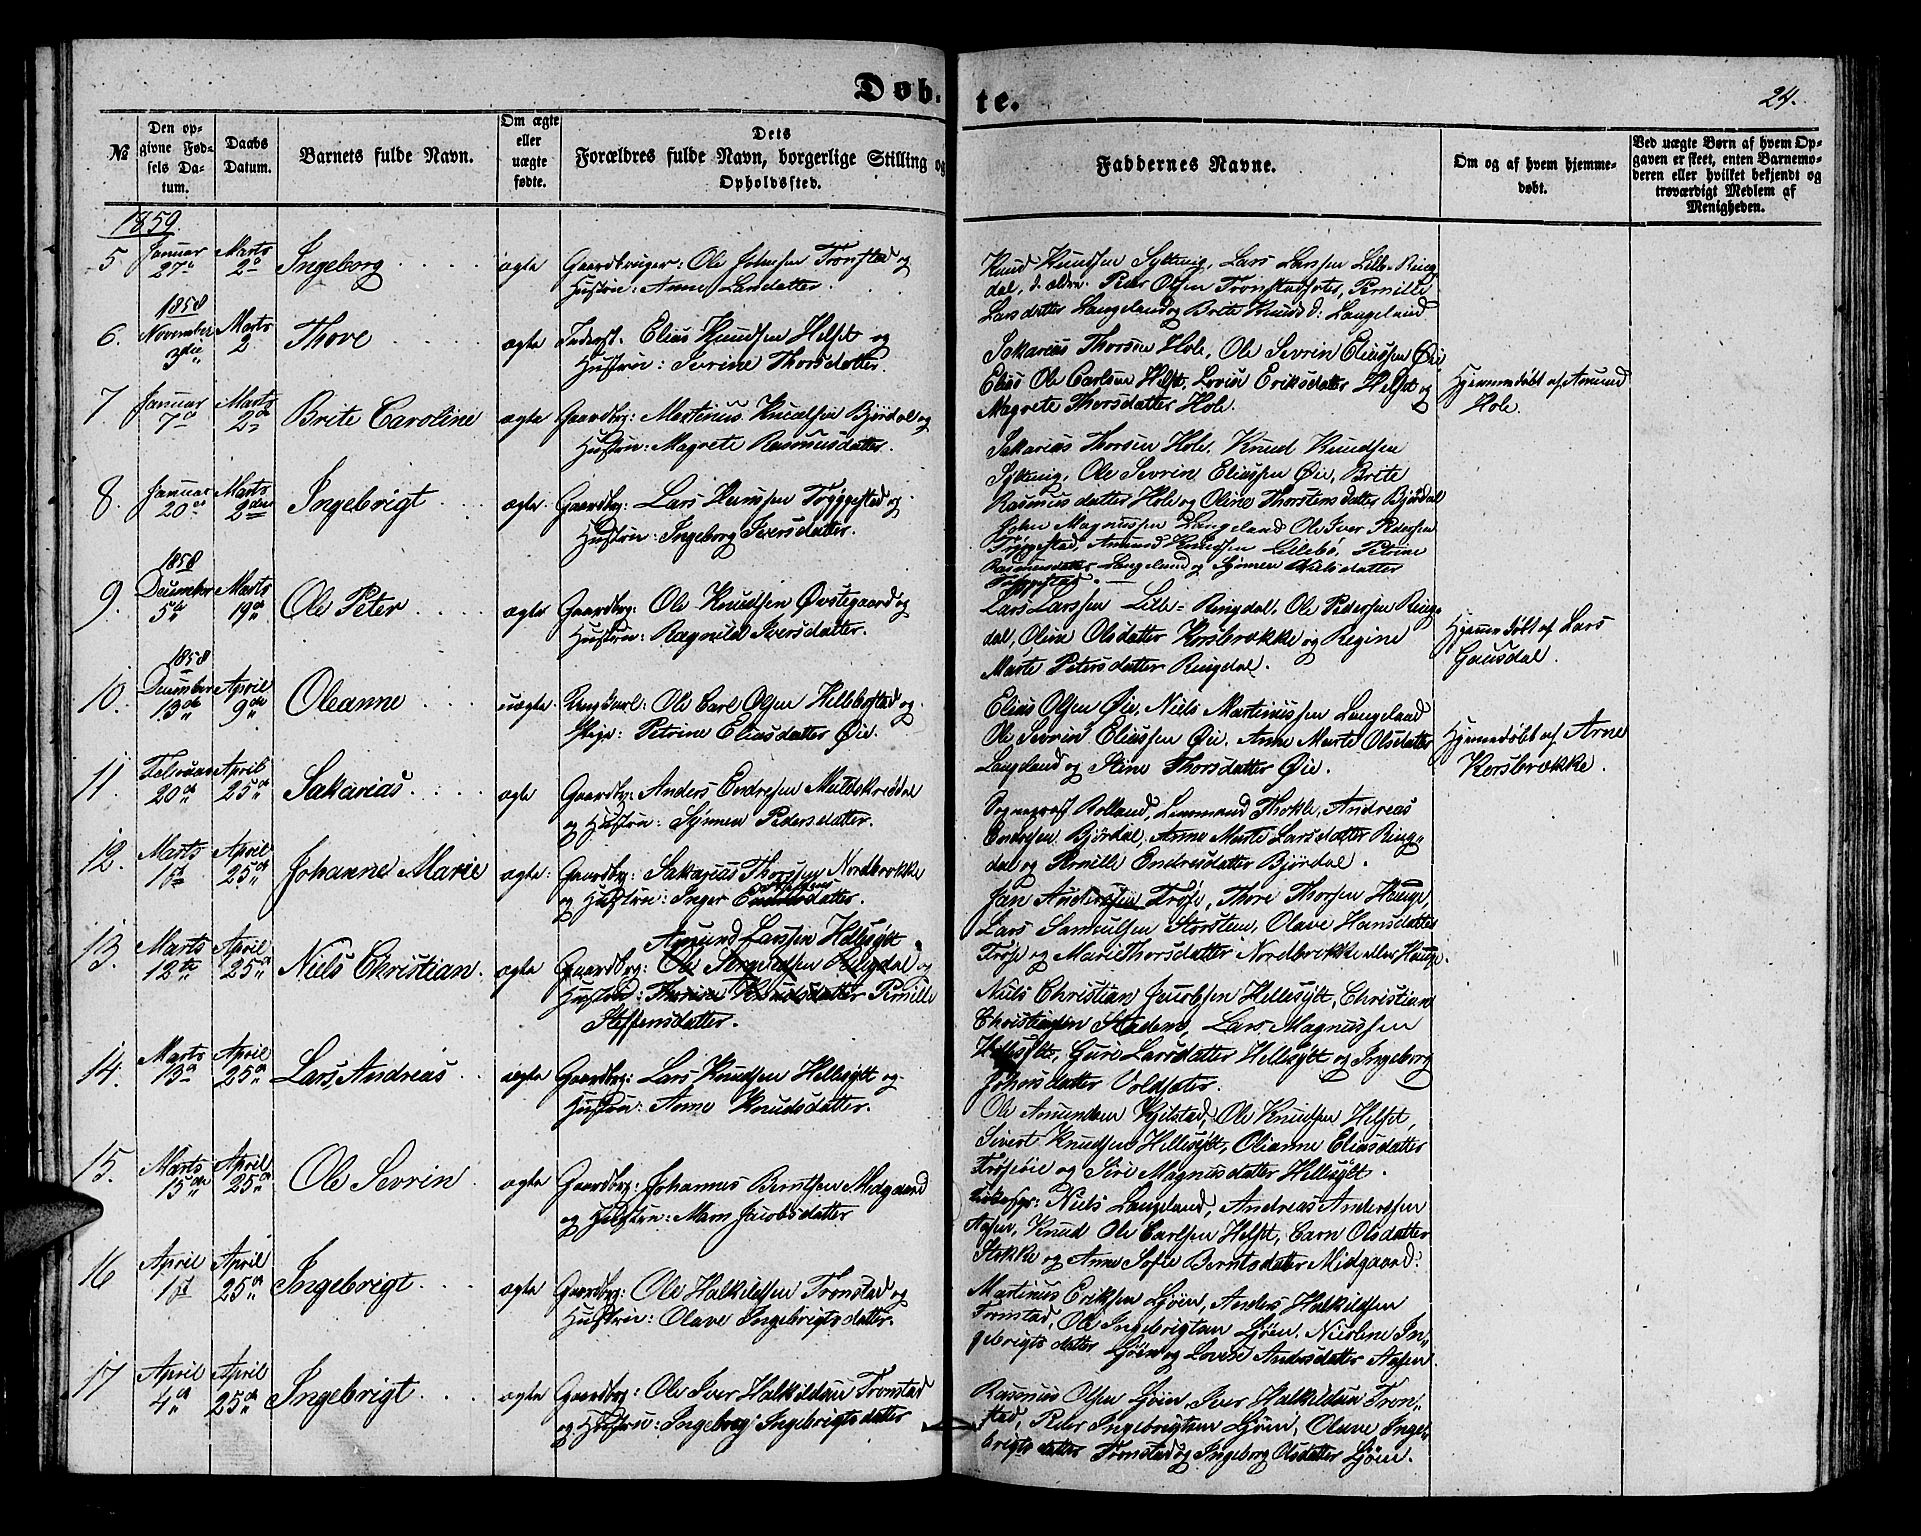 Døb-
te.
24.
№
Den op-
givne Fød-
sels Da-
tum.
Daabs
Datum.
Barnets fulde Navn.
Om ægte
eller
uægte
fødte.
Dets
Forældres fulde Navn, borgerlige Stilling og
Opholdssted.
Faddernes Navne.
Om og af hvem hjemme-
døbt.
Ved uægte Børn af hvem Op-
gaven er skeet, enten Barnemo-
deren eller hvilket bekjendt og
troværdigt Medlem af
Menigheden.
1859
5 Januar 27 Marts 2 Ingeborg ægte
Gaardbruger: Ole Johnsen Tronstad og
Hustru: Anne Larsdatter.
Knud Knudsen Lars Larssen Lille-Ring-
dal, d. ældre. Peter Olsen Pernille
Larsdatter Langeland og Brite Knudsd: Langeland
1858
6. November 3die Marts 2 Thove ægte
Elias Knudsen Helset og
Hustru: Sevrine Thorsdatter.
Sakarias Thorsen Hole, Ole Sevrin Eliassen Øie
Elias Ole Carlsen Helset, Lovise Eriksdatter Helset og
Magrete Thorsdatter Hole.
7 Januar 7 Marts 2 Brite Caroline ægte
Gaardbr: Martinus Knudsen Bjørdal og
Hustru: Magrete Rasmusdatter.
Hjemmedøbt af Amund
Hole.
Sakarias Thorsen Hole, Knud Knudsen
Ole Sevrin Eliassen Øie, Brite
Rasmusdatter Hole og Oline Thorstensdatter Bjørdal
8. Januar 20 Marts 2den Ingebrigt ægte
Gaardbr: Lars Tryggestad og
Hustru: Ingeborg Iversdatter.
John Magnussen Langeland Ole Iver Pedersen
Tryggestad, Amund Knudsen Lillebø, Petrine
Rasmusdatter Langeland og Synnev Nielsdatter
Tryggestad.
1858
9. December 5te Marts 19 Ole Peter ægte
Gaardbr: Ole Knudsen Øvstegaard og
Hustru: Ragnild Iversdatter.
Lars Larssen Lille-Ringdal, Ole Pedersen Ring-
dal, Oline Olsdatter Korsbrække og Regine
Marte Petersdatter Ringdal.
Hjemmedøbt af Lars
Gausdal.
1858
10. December 13de April 9de Oleanne uægte
Ungkarl: Ole Carl Olsen Hellebostad og
Pige: Petrine Eliasdatter Øie.
Elias Olsen Øie, Niels Martinussen Langeland
Ole Sevrin Eliassen Øie, Anne Marte Olsdatter
Langeland og Stine Thorsdatter Øie.
Hjemmedøbt af Arne
Korsbrække.
11. Februar 20de April 25 Sakarias ægte
Gaardbr: Anders Endresen Muldskreddal
og Hustru: Synnev Pedersdatter.
Sogneprest Rolland, Lensmand Thokle, Andreas
Endresen Bjørdal, Anne Marte Larsdatter Ring-
dal og Pernille Endresdatter Bjørdal.
12. Marts 1st April 25 Johanne Marie ægte
Gaardbr: Sakarias Thorssen Nordbrekke
og Hustru: Inger datter.
Jan Anderssen Frøse, Thore Thorsen Hauge,
Lars Samuelsen Storstein, Olave Hansdatter
Frøse og Marie Thorsdatter Nordbrekke eller Hauge.
13. Marts 12te April 25 Niels Christian. ægte
Amund Larssen Hellesylt
Gaardbr: Ole Ringdal og
Hustru: Knudsdatter Pernille
Steffensdatter.
Niels Christian Jacobsen Hellesylt, Christian
Christiansen Stadem, Lars Magnussen
Hellesylt, Guri Larsdatter Hellesylt og Ingeborg
Johnsdatter Voldsæter.
14. Marts 13 April 25 Lars Andreas ægte
Gaardbr: Lars Knudsen Hellesylt og
Hustru: Anne Knudsdatter.
Ole Amundsen Kjelstad, Ole Knudsen Helset,
Sivert Knudsen Hellesylt, Olianne Eliasdatter
Frøsøie og Siri Magnusdatter Hellesylt.
15. Marts 15 April 25 Ole Sevrin ægte
Gaardbr: Johannes Berntsen Midgaard
og Hustru: Maren Jacobsdatter
Kirkesgr: Niels Langeland, Andreas Anderssen
Aasen, Knud Ole Carlsen Helset, Carn Olsdatter
Stokke og Anne Sofie Berntsdatter Midgaard.
16 April 1st April 25 Ingebrigt ægte
Gaardbr: Ole Halkildsen Tronstad og
Hustru: Olave Ingebrigtsdatter.
Martinus Eriksen Ljøen, Anders Halkildsen
Tronstad, Ole Ingebrigtsen Ljøen, Nicoline In-
gebrigtsdatter Ljøen og Lovise Andersdatter Aasen.
17 April 4 April 25 Ingebrigt ægte
Gaardbr: Ole Iver Halkildsen Tronstad
og Hustru: Ingeborg Ingebrigtsdatter
Rasmus Olsen Ljøen, Iver Halkildsen Tron-
stad, Peter Ingebrigtsen Ljøen, Olave Inge-
brigtsdatter Tronstad og Ingeborg Olsdatter Ljøen.